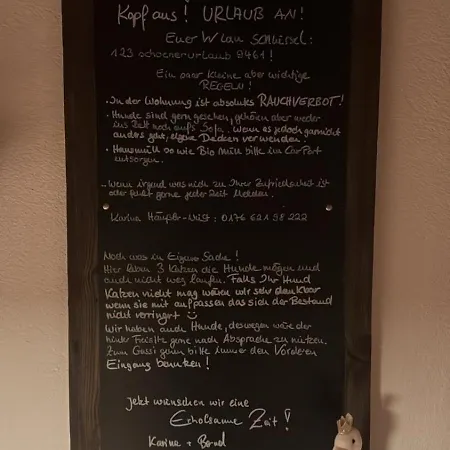 Kopf aus! URLAUB AN!
Euer WLan Schlüssel:
123 schoenerurlaub 8461!
Ein paar kleine aber wichtige
REGELN!
• In der Wohnung ist absolutes RAUCHVERBOT!
• Hunde sind gern gesehen, gehören aber weder
ins Bett noch auf's Sofa. Wenn es jedoch gar nicht
anders geht, eigene Decken verwenden.
• Hausmüll so wie Bio Müll bitte im CarPort
entsorgen.
Wenn irgend was nicht zu Ihrer Zufriedenheit ist
oder fehlt gerne jeder Zeit melden.
Karina : 0176 621 98 222
Noch was in Eigener Sache!
Hier leben 3 Katzen die Hunde mögen und
auch nicht weg laufen. Falls Ihr Hund
Katzen nicht mag wären wir sehr dankbar
wenn sie mit aufpassen das sich der Bestand
nicht verringert ☺
Wir haben auch Hunde, deswegen wäre der
hintere gerne nach Absprache zu nutzen.
Zum Gassi gehn bitte immer den Vorderen
Eingang benutzen!
Jetzt wünschen wir eine
Erholsame Zeit!
Karina + Bernd